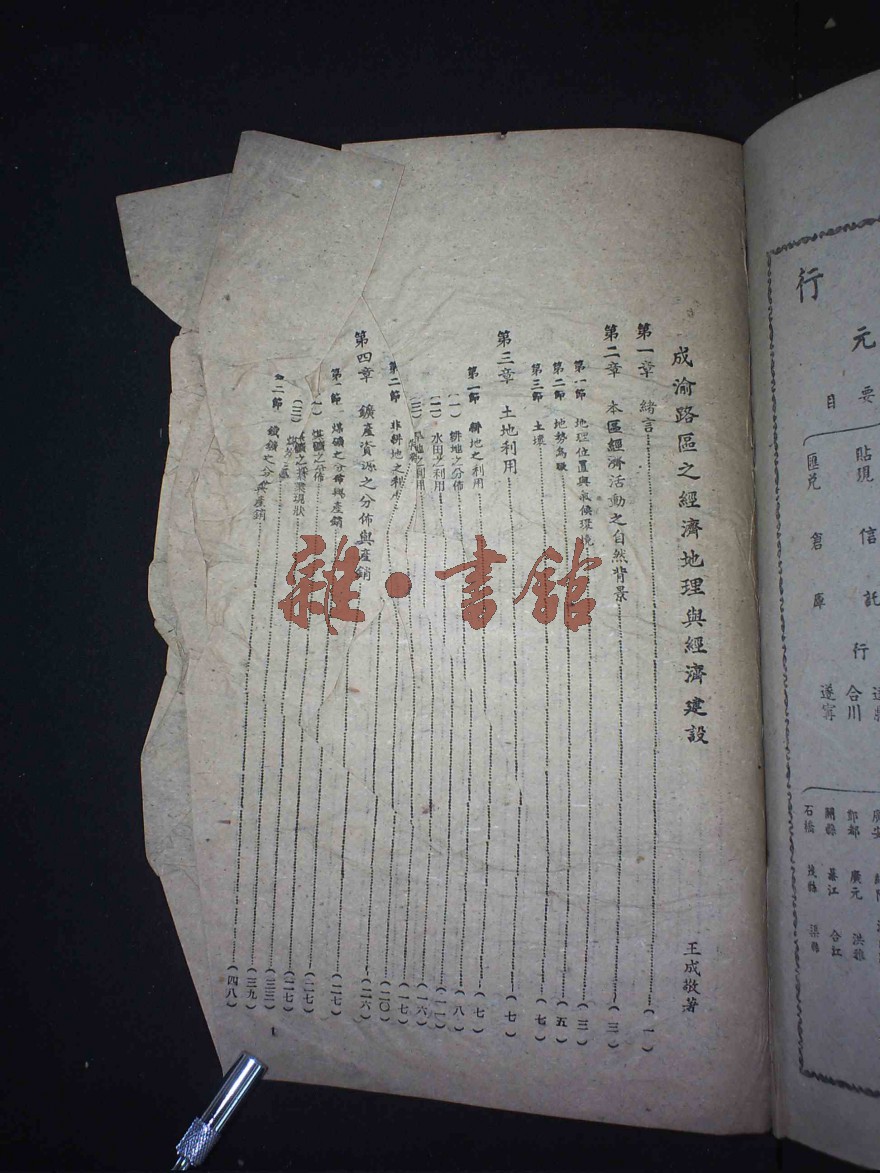 成渝路區之經濟地理與經濟建設
王成敬著
第一章 緒言(一)
第二章 本區經濟活動之自然背景(三)
第一節 地理位置與氣候環境(三)
第二節 地勢(五)
第三節 土壤(七)
第三章 土地利用(七)
第一節 耕地之利用(七)
(一)耕地之分佈(八)
(二)水田之利用(一一)
(三)旱地之利用(一六)
(一七)
第二節 非耕地之利用(二〇)
第四章 鑛產資源之分佈與產銷(二六)
第一節 煤礦之分佈與產銷(二七)
(一)煤礦之分佈(二七)
(二)煤礦之採業現狀(二七)
(三三)
第二節 鐵鑛之分佈與產銷(三九)
(四八)
1
雜·書館
行
元
要
目
貼現
信託
匯兌
倉庫
行
合川
遂寧
酆都
廣元
洪雅
開縣
綦江
合江
石橋
茂縣
渠縣
廣安